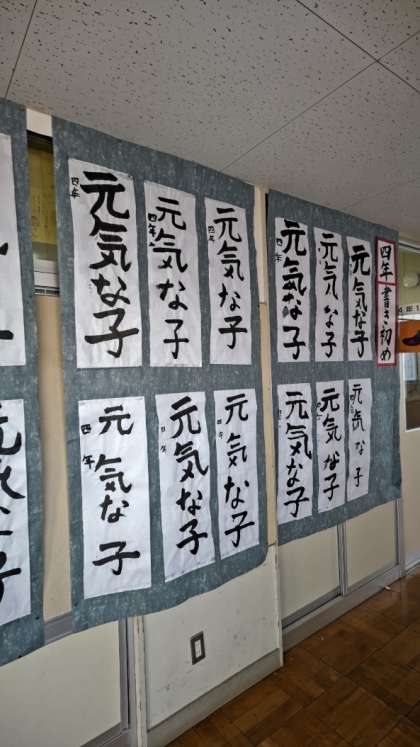 四年 書き初め
元気な子
元気な子
四年
元気な子
四年
元気な子
元気な子
四年
元気な子
元気な子
四年
元気な子
四年
元気な子
四年
元気な子
元気な子
元気な子
四年
元気な子